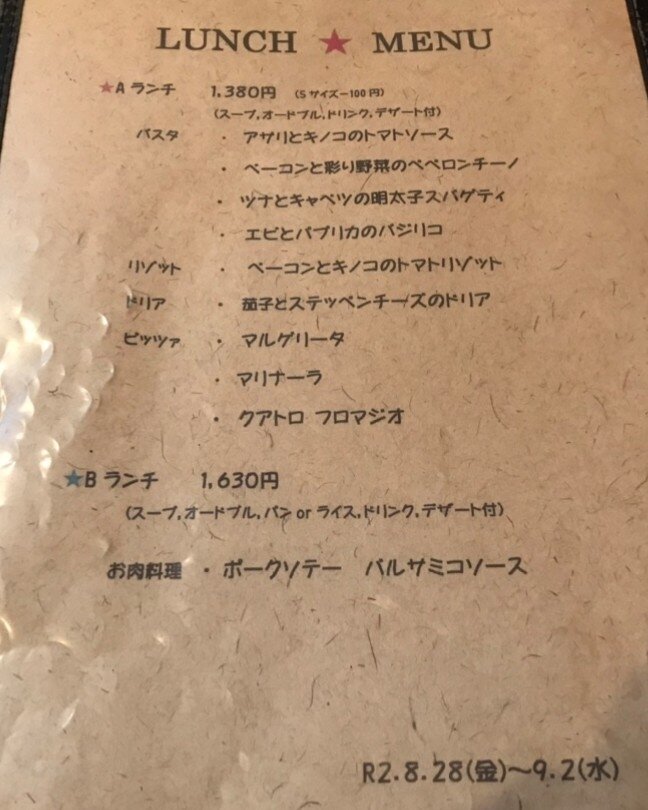 LUNCH ★ MENU
★A ランチ 1,380円 (S サイズ-100 円)
(スープ,オードブル,ドリンク,デザート付)
パスタ ・ アサリとキノコのトマトソース
・ ベーコンと彩り野菜のペペロンチーノ
・ ツナとキャベツの明太子スパゲティ
・ エビとパプリカのバジリコ
リゾット ・ ベーコンとキノコのトマトリゾット
ドリア ・ 茄子とステッペンチーズのドリア
ピッツァ ・ マルゲリータ
・ マリナーラ
・ クアトロ フロマジオ
★B ランチ 1,630円
(スープ,オードブル,パン or ライス,ドリンク,デザート付)
お肉料理 ・ ポークソテー バルサミコソース
R2.8.28(金)～9.2(水)